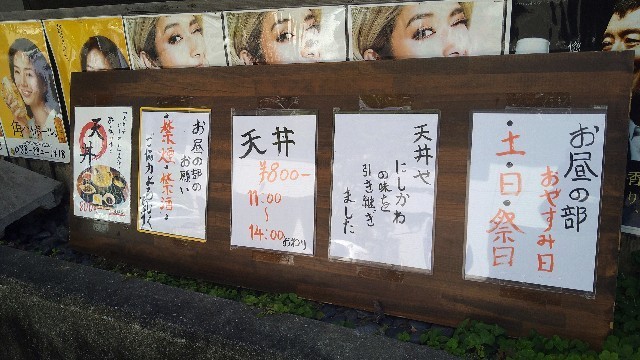 お昼の部
おやすみ日
・土・日・祭日
天丼や
にしかわ
の味を
引き継ぎ
ました
天丼
¥800-
11:00
〜
14:00
おわり
お昼の部の
お願い
・禁煙・禁酒・
天丼